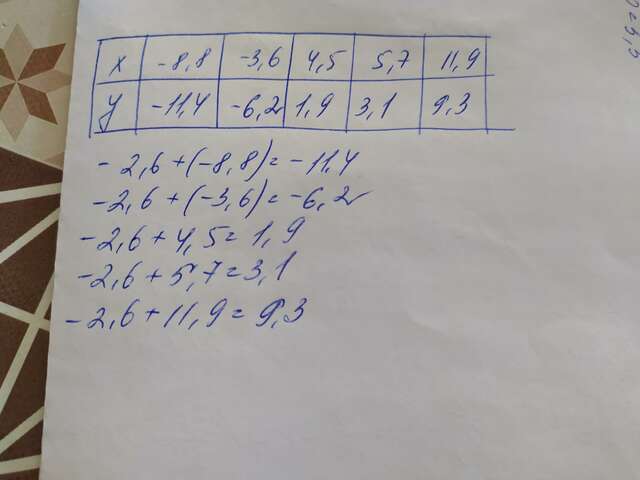 x -8,8 -3,6 4,5 5,7 11,9
y -11,4 -6,2 1,9 3,1 9,3
-2,6+(-8,8)=-11,4
-2,6+(-3,6)=-6,2
-2,6+4,5=1,9
-2,6+5,7=3,1
-2,6+11,9=9,3